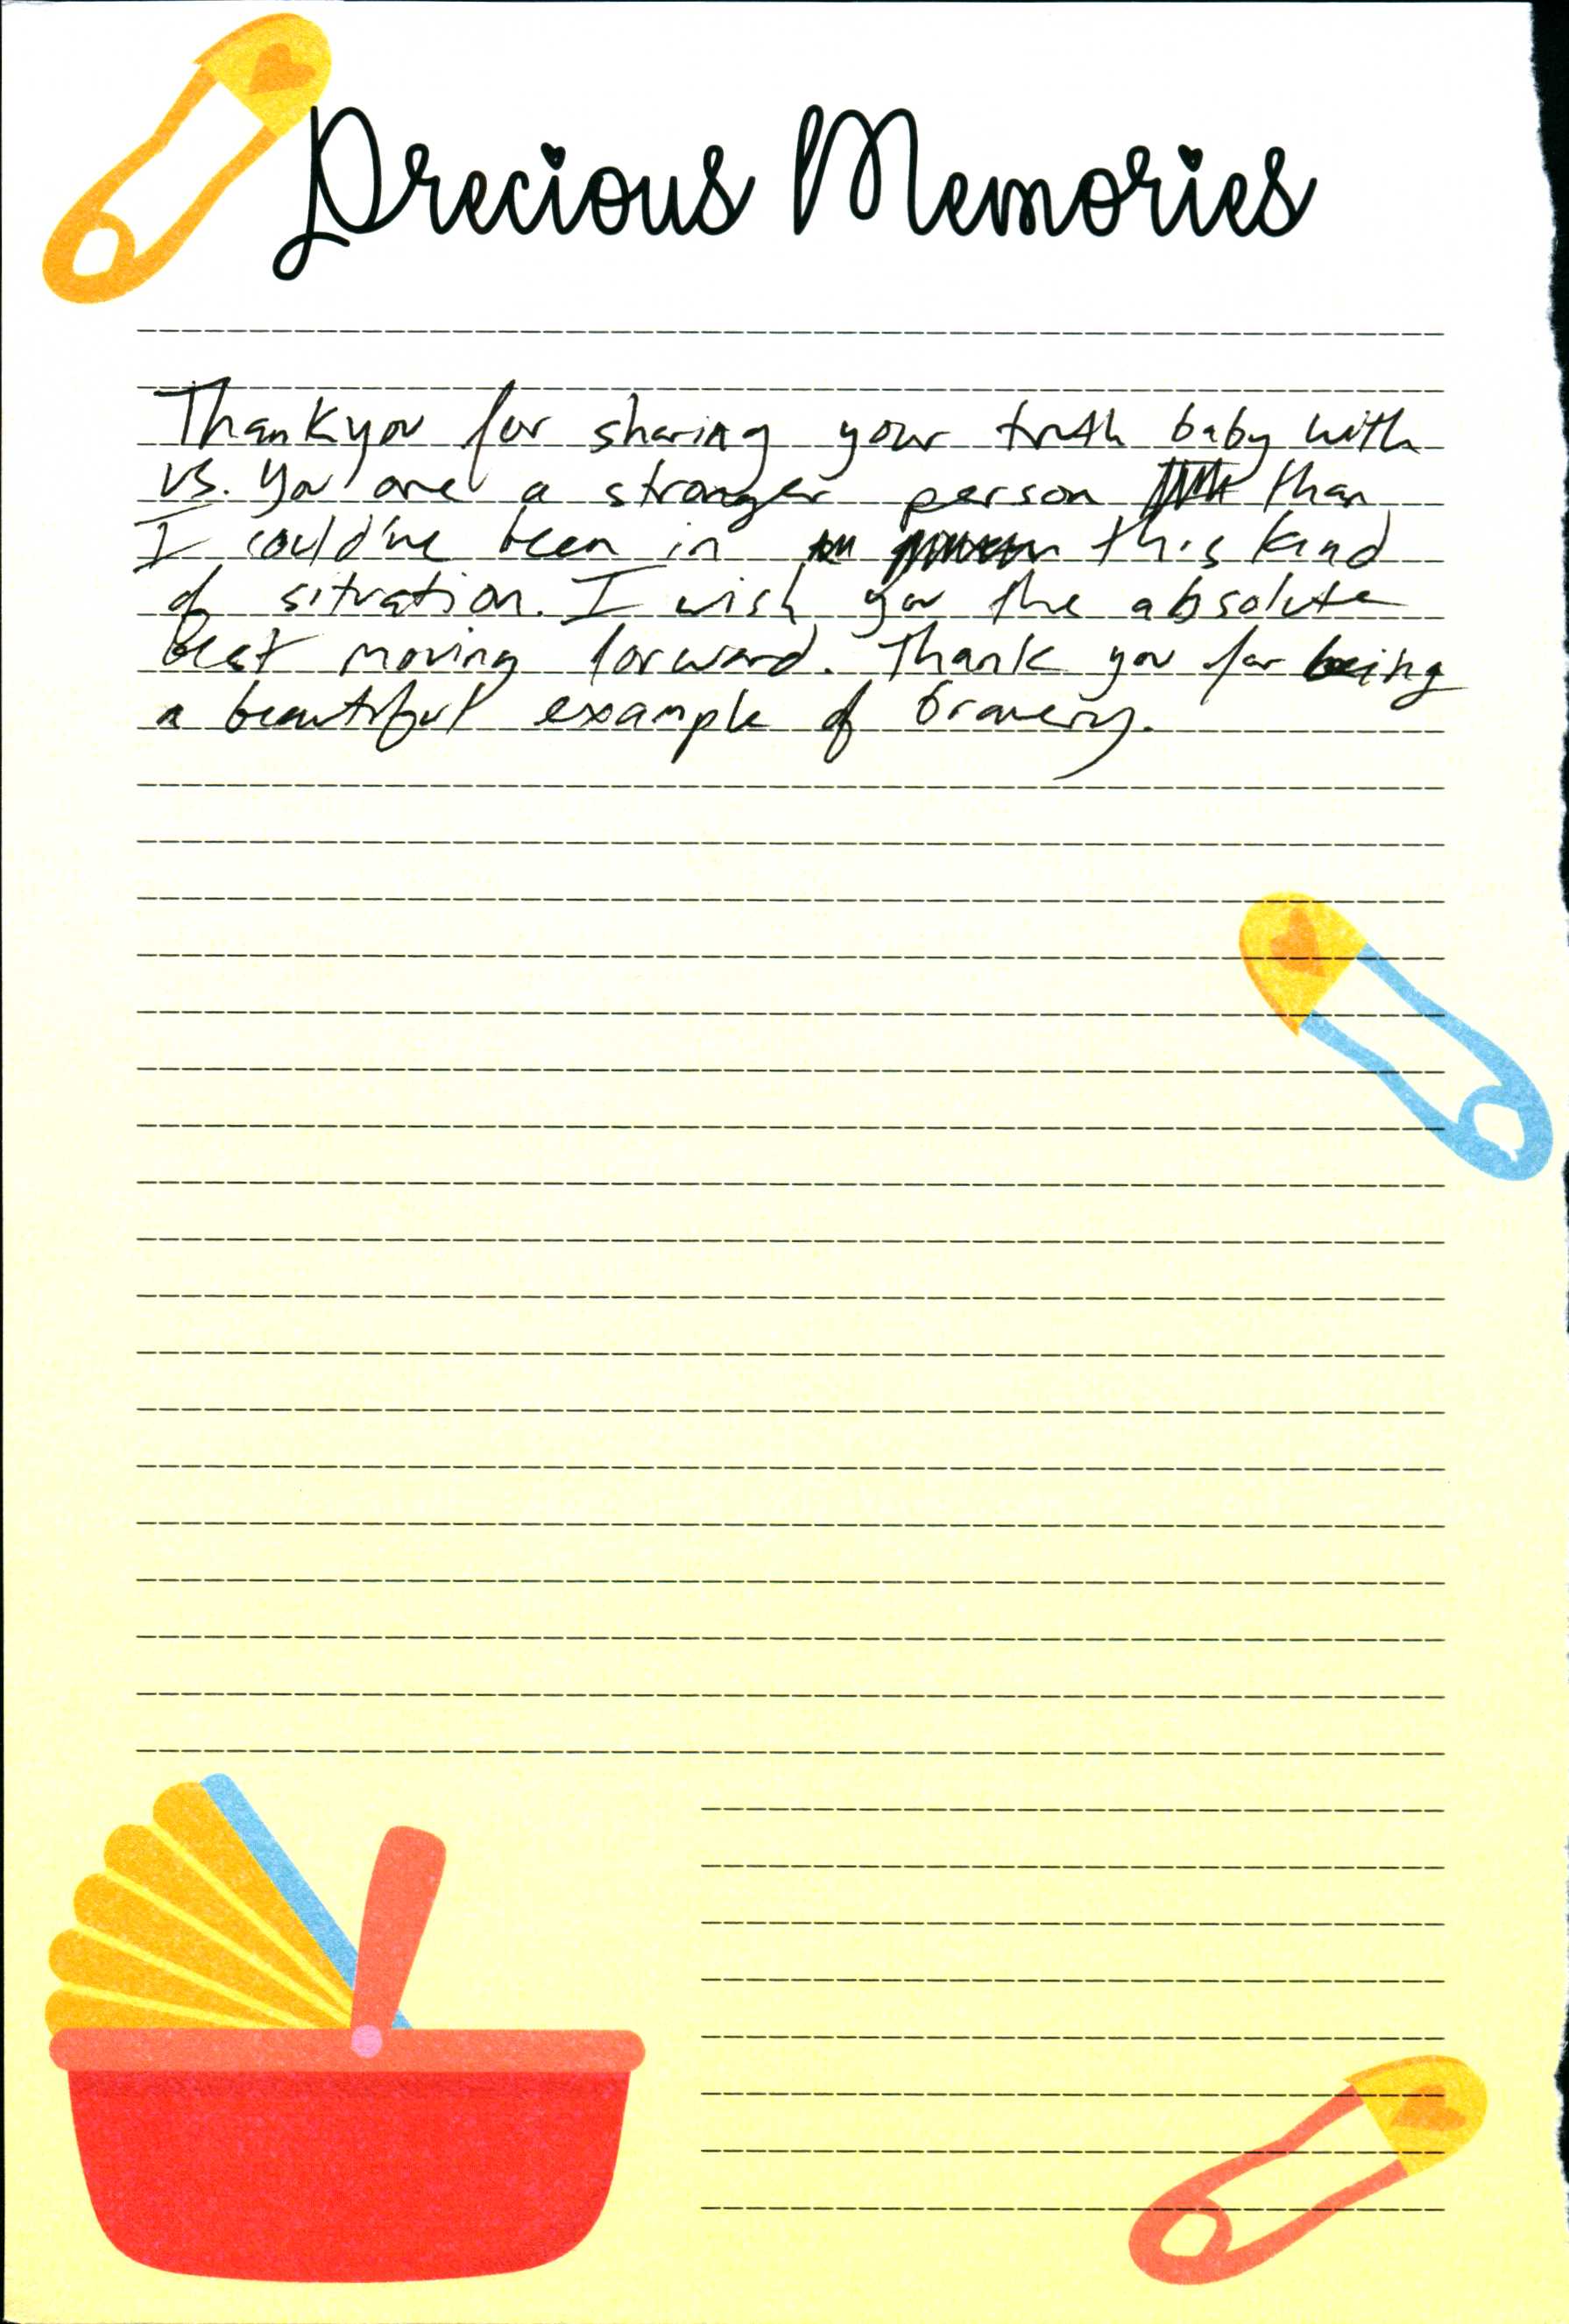 Precious Memories
Thankyou for sharing your truth baby with
us. You are a stronger person than
I could've been in this kind
of situation. I wish you the absolute
best moving forward. Thank you for being
a beautiful example of bravery.